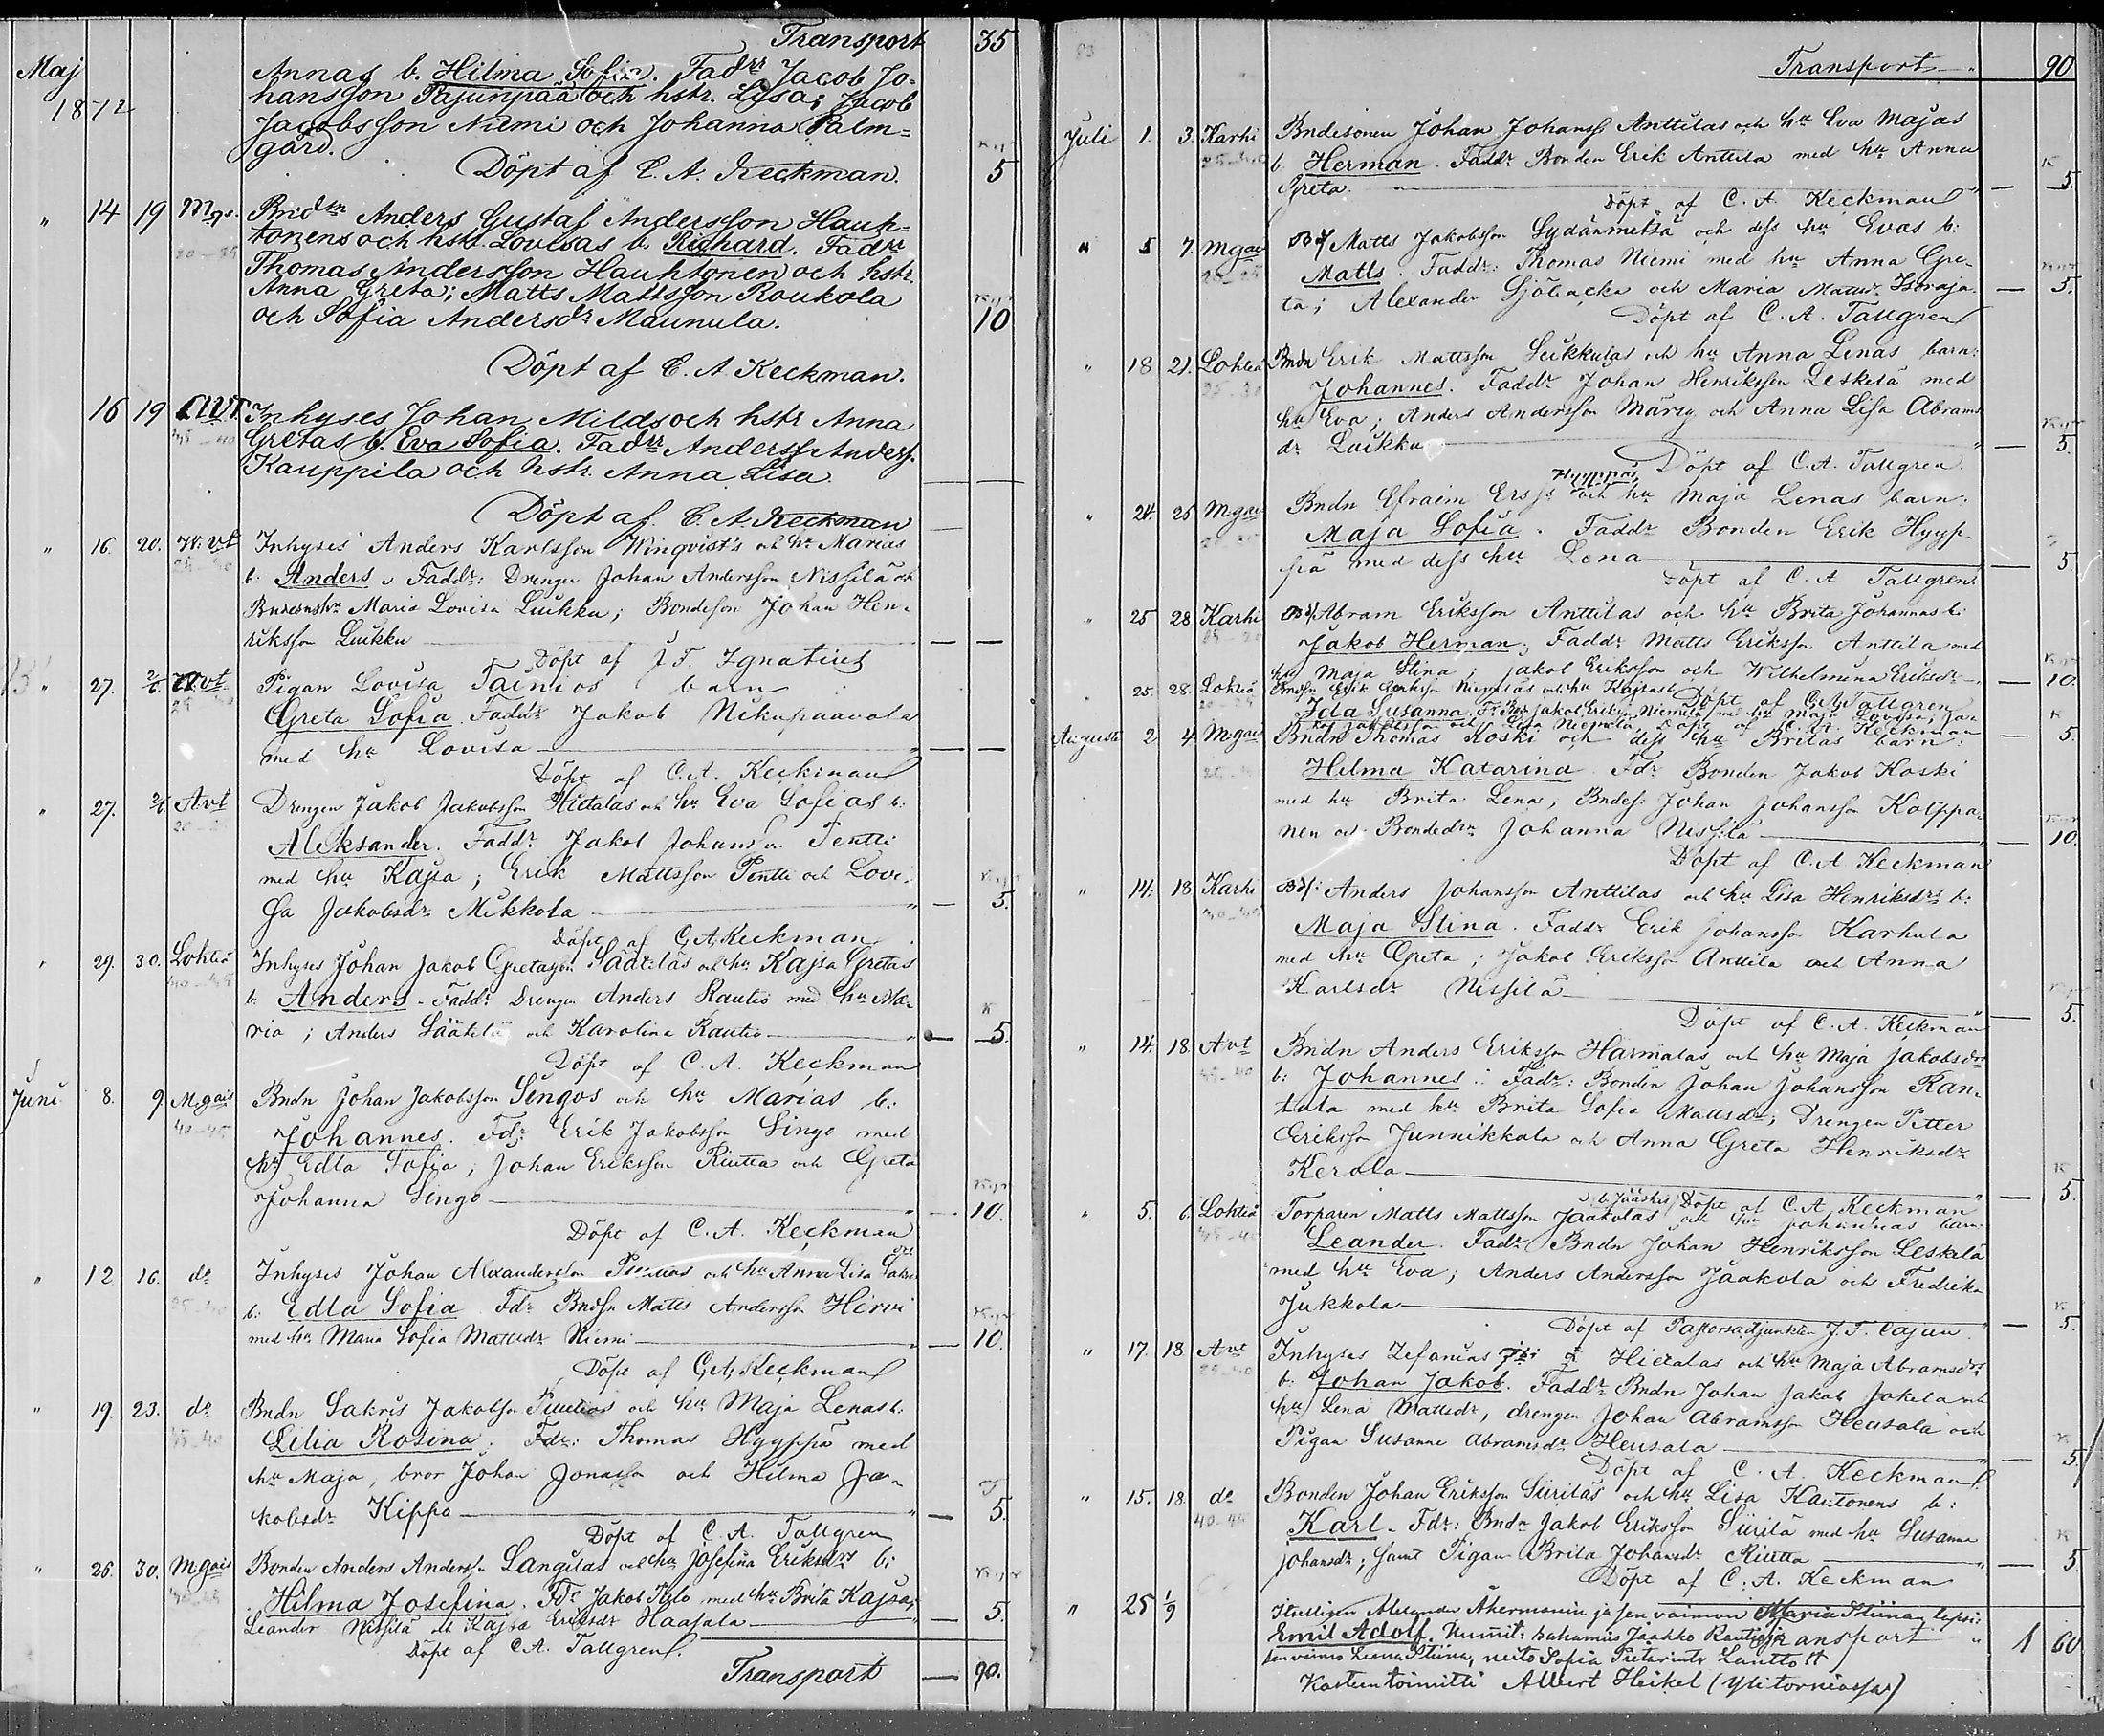 Transport 35
Maj
1872
Annas b. Hilma Sofia. Fadrr Jacob Jo-
hansson Pajunpää och hstr. Lisa; Jacob
Jacobsson Niemi och Johanna Palm-
gård.
Döpt af C. A. Keckman. 5
" 14 19 Mgs. Bndn Anders Gustaf Andersson Hauh-
20-25 tonens och hstr. Lovisas b. Richard. Fadrr
Thomas Andersson Hauhtonen och hstr.
Anna Greta; Matts Mattsson Roukola
och Sofia Andersdr Maunula. 10
Döpt af C. A. Keckman.
16 19 AVT. Inhyses Johan Milds och hstr Anna
Gretas b. Eva Sofia. Fadrr Anderss Anderss.
Kauppila och hstr. Anna Lisa
Döpt af C. A. Keckman
" 16. 20. Inhyses Anders Karlsson Winqvist's och hu Marias
b: Anders. Faddr: Drengen Johan Andersson Nissilä och
Maria Lovisa Luikku; Bondeson Johan Hen-
riksson Luikku
Döpt af J. F. Ignatius
" 27. 2/6. Avt Pigan Lovisa Tainios barn
Greta Sofia. Faddr Jakob Nikupaavola
med hu Lovisa
Döpt af C. A. Keckman
" 27. 2/6. Avt Drengen Jakob Jakobsson Hietalas och hu Eva Sofias b:
Aleksander. Faddr Jakob Johansson Pentti
med hu Kajsa; Erik Mattsson Pentti och Lovi-
sa Jakobsdr Mikkola 5.
Döpt af C. A. Keckman
" 29. 30. Lohteå Inhyses Johan Jakob Gretasson Säätiläs och hu Kajsa Gretas
40-45 b: Anders. Faddr Drengen Anders Rautio med hu Ma-
ria; Anders Säätelä och Karolina Rautio 5.
Döpt af C. A. Keckman
Juni 8. 9 M.gais Bndn Johan Jakobsson Singos och hu Marias b:
40-45 Johannes. Fdr Erik Jakobsson Singo med
hu Edla Sofia; Johan Eriksson Riutta och Greta
Johanna Singo 10.
Döpt af C. A. Keckman
" 12 16. do Inhyses Johan Alexandersson och hu Anna Lisa
b: Edla Sofia Fdr Bndsn Matts Andersson Hirvi
med hu Maria Sofia Mattsdr Niemi 10.
Döpt af C. A. Keckman
" 19. 23. do Bndn Sakris Jakobsson och hu Maja Lenas b:
35-40 Lilia Rosina. Fdr: Thomas Hyyppä med
hu Maja, bror Johan Jonasson och Hilma Ja-
kobsdr Kippo 5.
Döpt af C. A. Tallgren
" 26. 30. Mgais Bonden Anders Andersson Langilas och hu Josefina Eriksdrs b:
Hilma Josefina. Fdr Jakob Hylo med hu Brita Kajsa;
Leander Nissilä och Kajsa Eriksdr Haapala 5.
Döpt af C. A. Tallgren.
Transport 90.
Transport 90
Juli 1. 3. Karhi Bndesonen Johan Johanss Anttilas och hu Eva Majas
b. Herman. Faddr Bonden Erik Anttila med hu Anna
Greta. 5.
Döpt af C. A. Keckman
" 5 7. Mgais Matts Jakobsson Sydänmetsä och dess hu Evas b:
Matts. Faddr: Thomas Niemi med hu Anna Gre-
ta; Alexander Sjöbacka och Maria Mattsdr Isoraja. 5.
Döpt af C. A. Tallgren
" 18 21. Lohteå Bndn Erik Mattsson Luikkulas och hu Anna Lenas barn:
25-30 Johannes. Faddr Johan Henriksson Leskelä med
hu Eva; Anders Andersson Märsy och Anna Lisa Abrams
dr Luikku 5.
Döpt af C. A. Tallgren.
Hyyppäs
" 24. 25 Mgais Bndn Efraim Erss och hu Maja Lenas barn:
Maja Sofia. Faddr Bonden Erik Hyyp-
pä med dess hu Lena 5.
Döpt af C. A. Tallgren.
" 25 28 Karhi Abram Eriksson Anttilas och hu Brita Johannas b:
Jakob Herman. Faddr Matts Eriksson Anttila med
hu Maja Stina; Jakob Eriksson och Wilhelmina Eriksdr 10.
Döpt af C. A. Tallgren
" 25. 28. Lohteå Bndsn Erik Eriksson Niemelas och hu Kajsas b
Ida Susanna. Fr Jakob Eriks. Niemelä med hu Maja Lovisa, Ja-
kob Jakobsson och Lisa Niemelä. Döpt af C. A. Keckman 5.
Augusti 2 4 Mgais Bndn Thomas Koski och dess hu Britas barn:
Hilma Katarina. Fdr Bonden Jakob Koski
med hu Brita Lena, Bndes: Johan Johansson Kolppa-
nen och Bondedrn Johanna Nissilä 10.
Döpt af C. A. Keckman
" 14. 18. Karhi Anders Johansson Anttilas och hu Lisa Henriksdrs b:
Maja Stina. Faddr Erik Johansson Karhula
med hu Greta; Jakob Eriksson Anttila och Anna
Karlsdr Nissilä 5.
Döpt af C. A. Keckman
" 14. 18. Avt Bndn Anders Eriksson Härmälas och hu Maja Jakobsdrs
35-40 b: Johannes. Fadr: Bonden Johan Johansson Ran-
tala med hu Brita Sofia Mattsdr; Drengen Petter
Eriksson Junnikkala och Anna Greta Henriksdr
Kerola 5.
Döpt af C. A. Keckman
" 5. 6. Lohteå Torparen Matts Mattsson Jaakolas och hu Johannas barn
Leander. Fadr Bndn Johan Henriksson Leskelä
med hu Eva; Anders Andersson Jaakola och Fredrika
Jukkola 5.
Döpt af Pastorsadjunkten J. F. Cajan.
" 17. 18 Avt Inhyses Zefanias Hietalas och hu Maja Abramsdrs
b. Johan Jakob. Faddr Bndn Johan Jakob Jokela och
hu Lena Mattsdr, drengen Johan Abramsson Heusala och
Pigan Susanna Abramsdr Heusala 5
Döpt af C. A. Keckman
" 15. 18. do Bonden Johan Eriksson Siiriläs och hu Lisa Kantonens b:
40-45 Karl. Fdr: Bndn Jakob Eriksson Siirilä med hu Susanna
Johansdr; samt Pigan Brita Johansdr Riutta 5.
Döpt af C. A. Keckman
" 25 1/9 Itsellisen Alexander Åkermanin ja sen vaimon Maria Stiinan lapsi:
Emil Adolf. Kummit: Jaakko Rautio ja
sen vaimo Leena Stiina, neito Sofia Pietarintr Lantto
Transport 1 60
Kasteen toimitti Albert Heikel (Ylitorniossa)